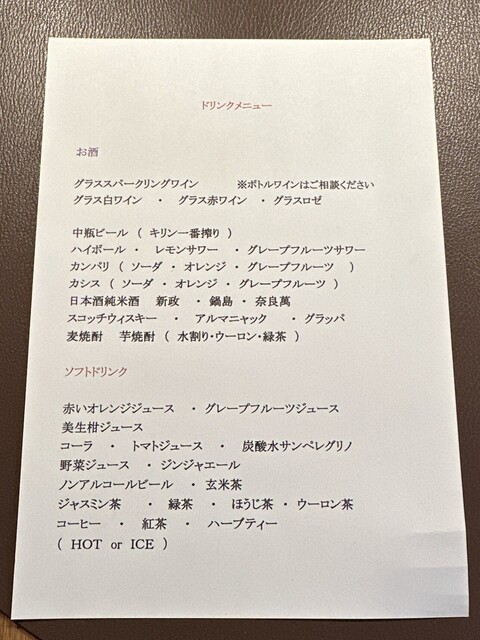 ドリンクメニュー
お酒
グラススパークリングワイン ※ボトルワインはご相談ください
グラス白ワイン ・ グラス赤ワイン ・グラスロゼ
中瓶ビール ( キリン一番搾り )
ハイボール ・ レモンサワー ・グレープフルーツサワー
カンパリ ( ソーダ ・ オレンジ ・ グレープフルーツ )
カシス ( ソーダ ・ オレンジ ・ グレープフルーツ )
日本酒純米酒 新政 ・ 鍋島 ・ 奈良萬
スコッチウィスキー ・ アルマニャック ・ グラッパ
麦焼酎 芋焼酎 ( 水割り・ウーロン・緑茶 )
ソフトドリンク
赤いオレンジジュース ・ グレープフルーツジュース
美生柑ジュース
コーラ ・ トマトジュース ・ 炭酸水サンペレグリノ
野菜ジュース ・ ジンジャエール
ノンアルコールビール ・ 玄米茶
ジャスミン茶 ・ 緑茶 ・ ほうじ茶 ・ ウーロン茶
コーヒー ・ 紅茶 ・ ハーブティー
( HOT or ICE )